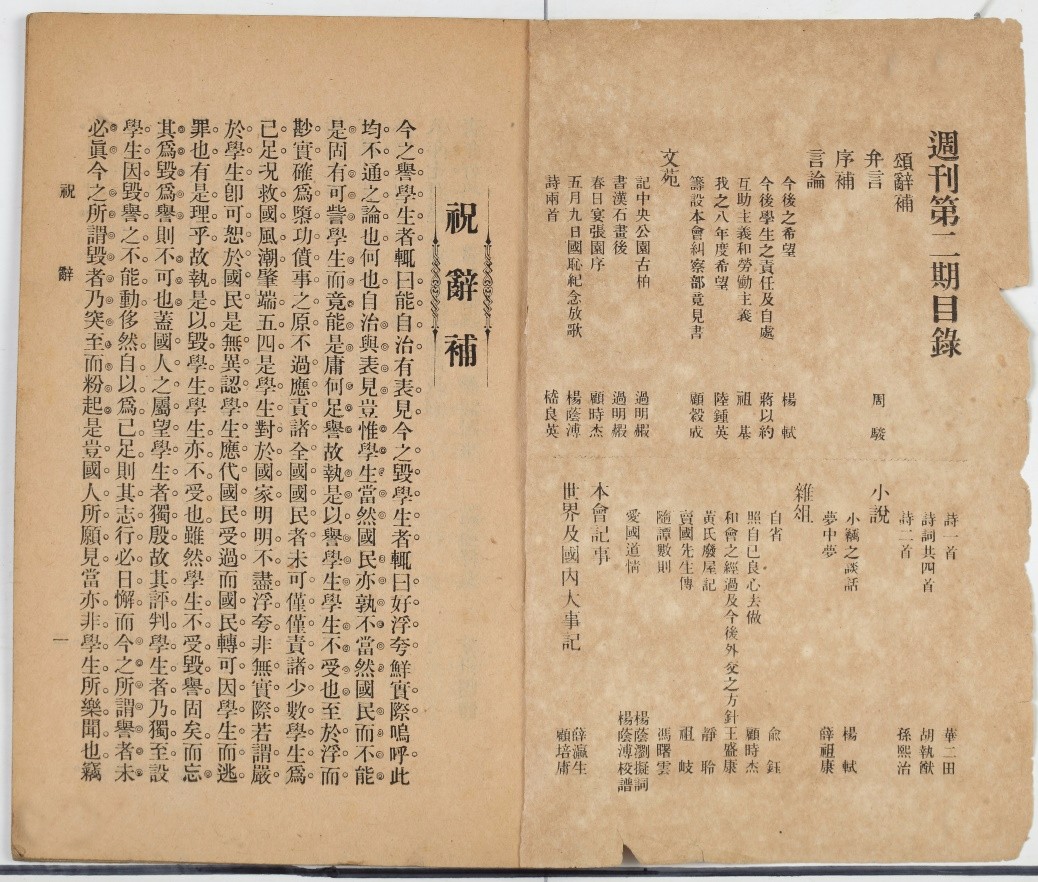 週刊第二期目錄
頌辭補
弁言 周駿
序補
言論
今後之希望 楊軾
今後學生之責任及自處 蔣以約
互助主義和勞働主義 祖基
我之八年度希望 陸鍾英
籌設本會糾察部意見書 顧穀成
文苑
記中央公園古柏 過明霞
書漢石畫後 過明霞
春日宴張園序 顧時杰
五月九日國恥紀念放歌 楊蔭溥
詩兩首 嵇良英
詩一首 華二田
詩詞共四首 胡執猷
詩二首 孫熙治
小說
小竊之談話 楊軾
夢中夢 薛祖康
雜俎
自省 兪鈺
照自己良心去做 顧時杰
和會之經過及今後外交之方針 王盛康
黃氏廢屋記 靜聆
賣國先生傳 祖岐
隨譚數則 馮曙雲
愛國道情 楊蔭瀏擬詞 楊蔭溥校譜
本會記事
世界及國內大事記 薛瀛生 顧培庸
祝辭補
今之譽學生者輒曰能自治有表見今之毀學生者輒曰好浮夸鮮實際嗚呼此
均不通之論也何也自治與表見豈惟學生當然國民亦孰不當然國民而不能
是固有可訾學生而竟能是庸何足譽故執是以譽學生學生不受也至於浮而
尠實確爲隳功僨事之原不過應責諸全國國民者未可僅僅責諸少數學生爲
已足况救國風潮肇端五四是學生對於國家明明不盡浮夸非無實際若謂嚴
於學生卽可恕於國民是無異認學生應代國民受過而國民轉可因學生而逃
罪也有是理乎故執是以毀學生學生亦不受也雖然學生不受毀譽固矣而忘
其爲毀爲譽則不可也蓋國人之屬望學生者獨殷故其評判學生者乃獨至設
學生因毀譽之不能動侈然自以爲已足則其志行必日懈而今之所謂譽者未
必眞今之所謂毀者乃突至而粉起是豈國人所願見當亦非學生所樂聞也竊
祝辭 一